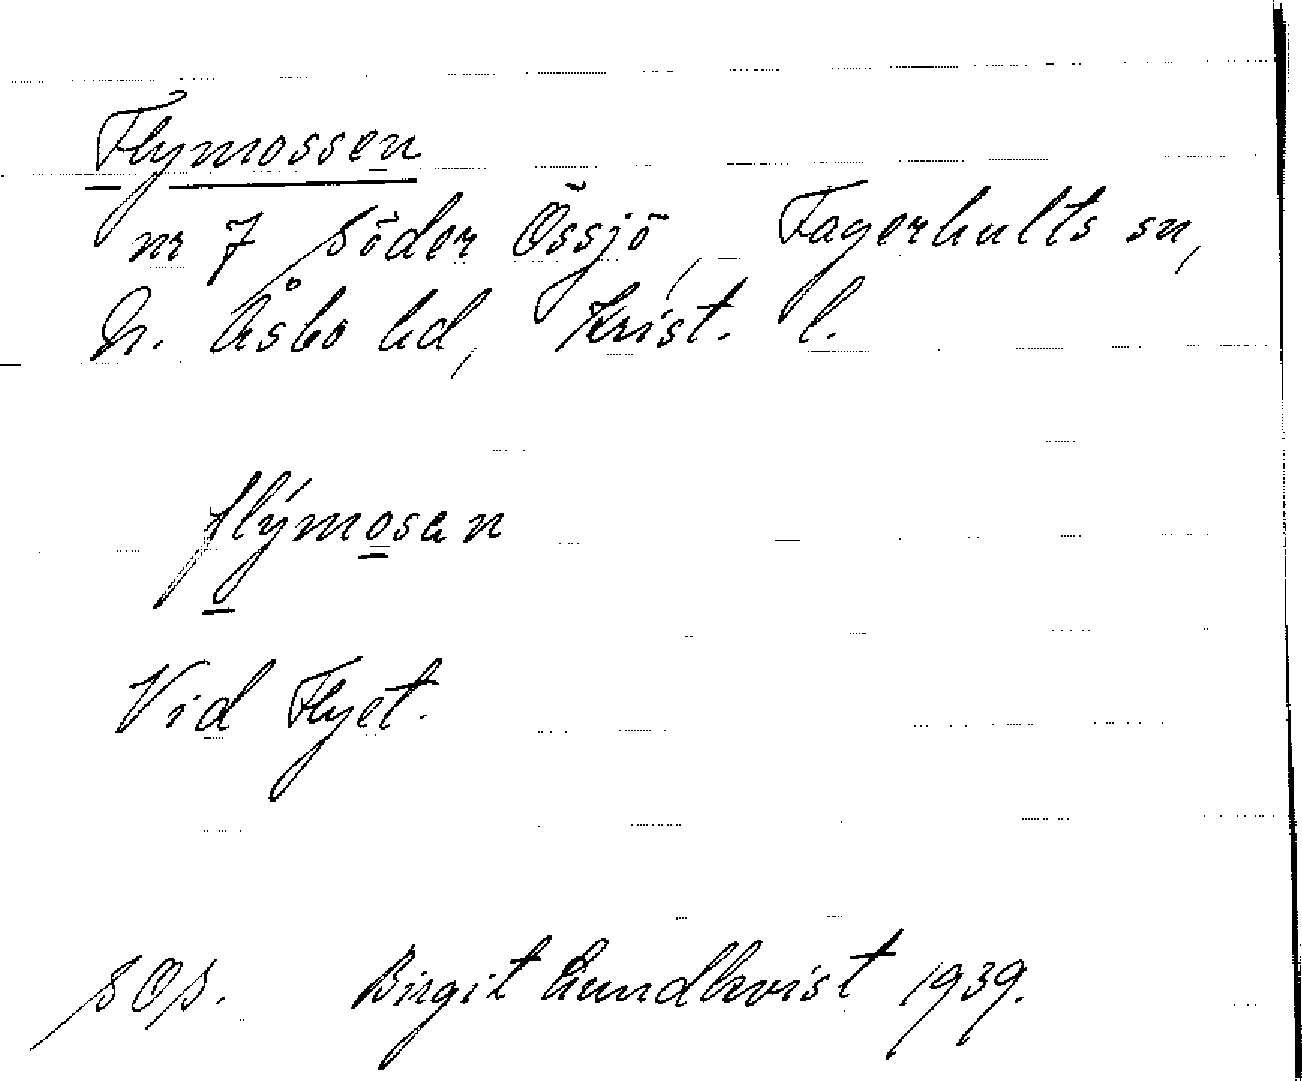 Flymossen
nr 7 Söder Össjö, Fagerhults sn,
N. Åsbo hd, Krist. l.
flýmosan
Vid Flyet.
SOS. Birgit Lundkvist 1939.